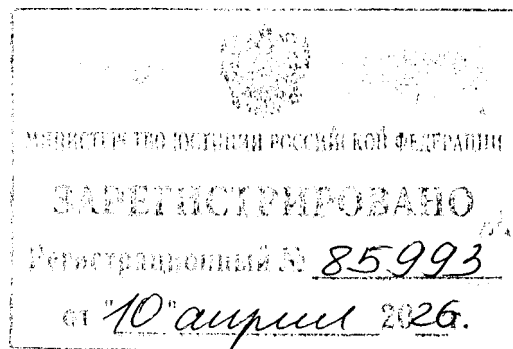 МИНИСТЕРСТВО ЮСТИЦИИ РОССИЙСКОЙ ФЕДЕРАЦИИ
ЗАРЕГИСТРИРОВАНО
Регистрационный № 85993
от "10" апреля 2026г.